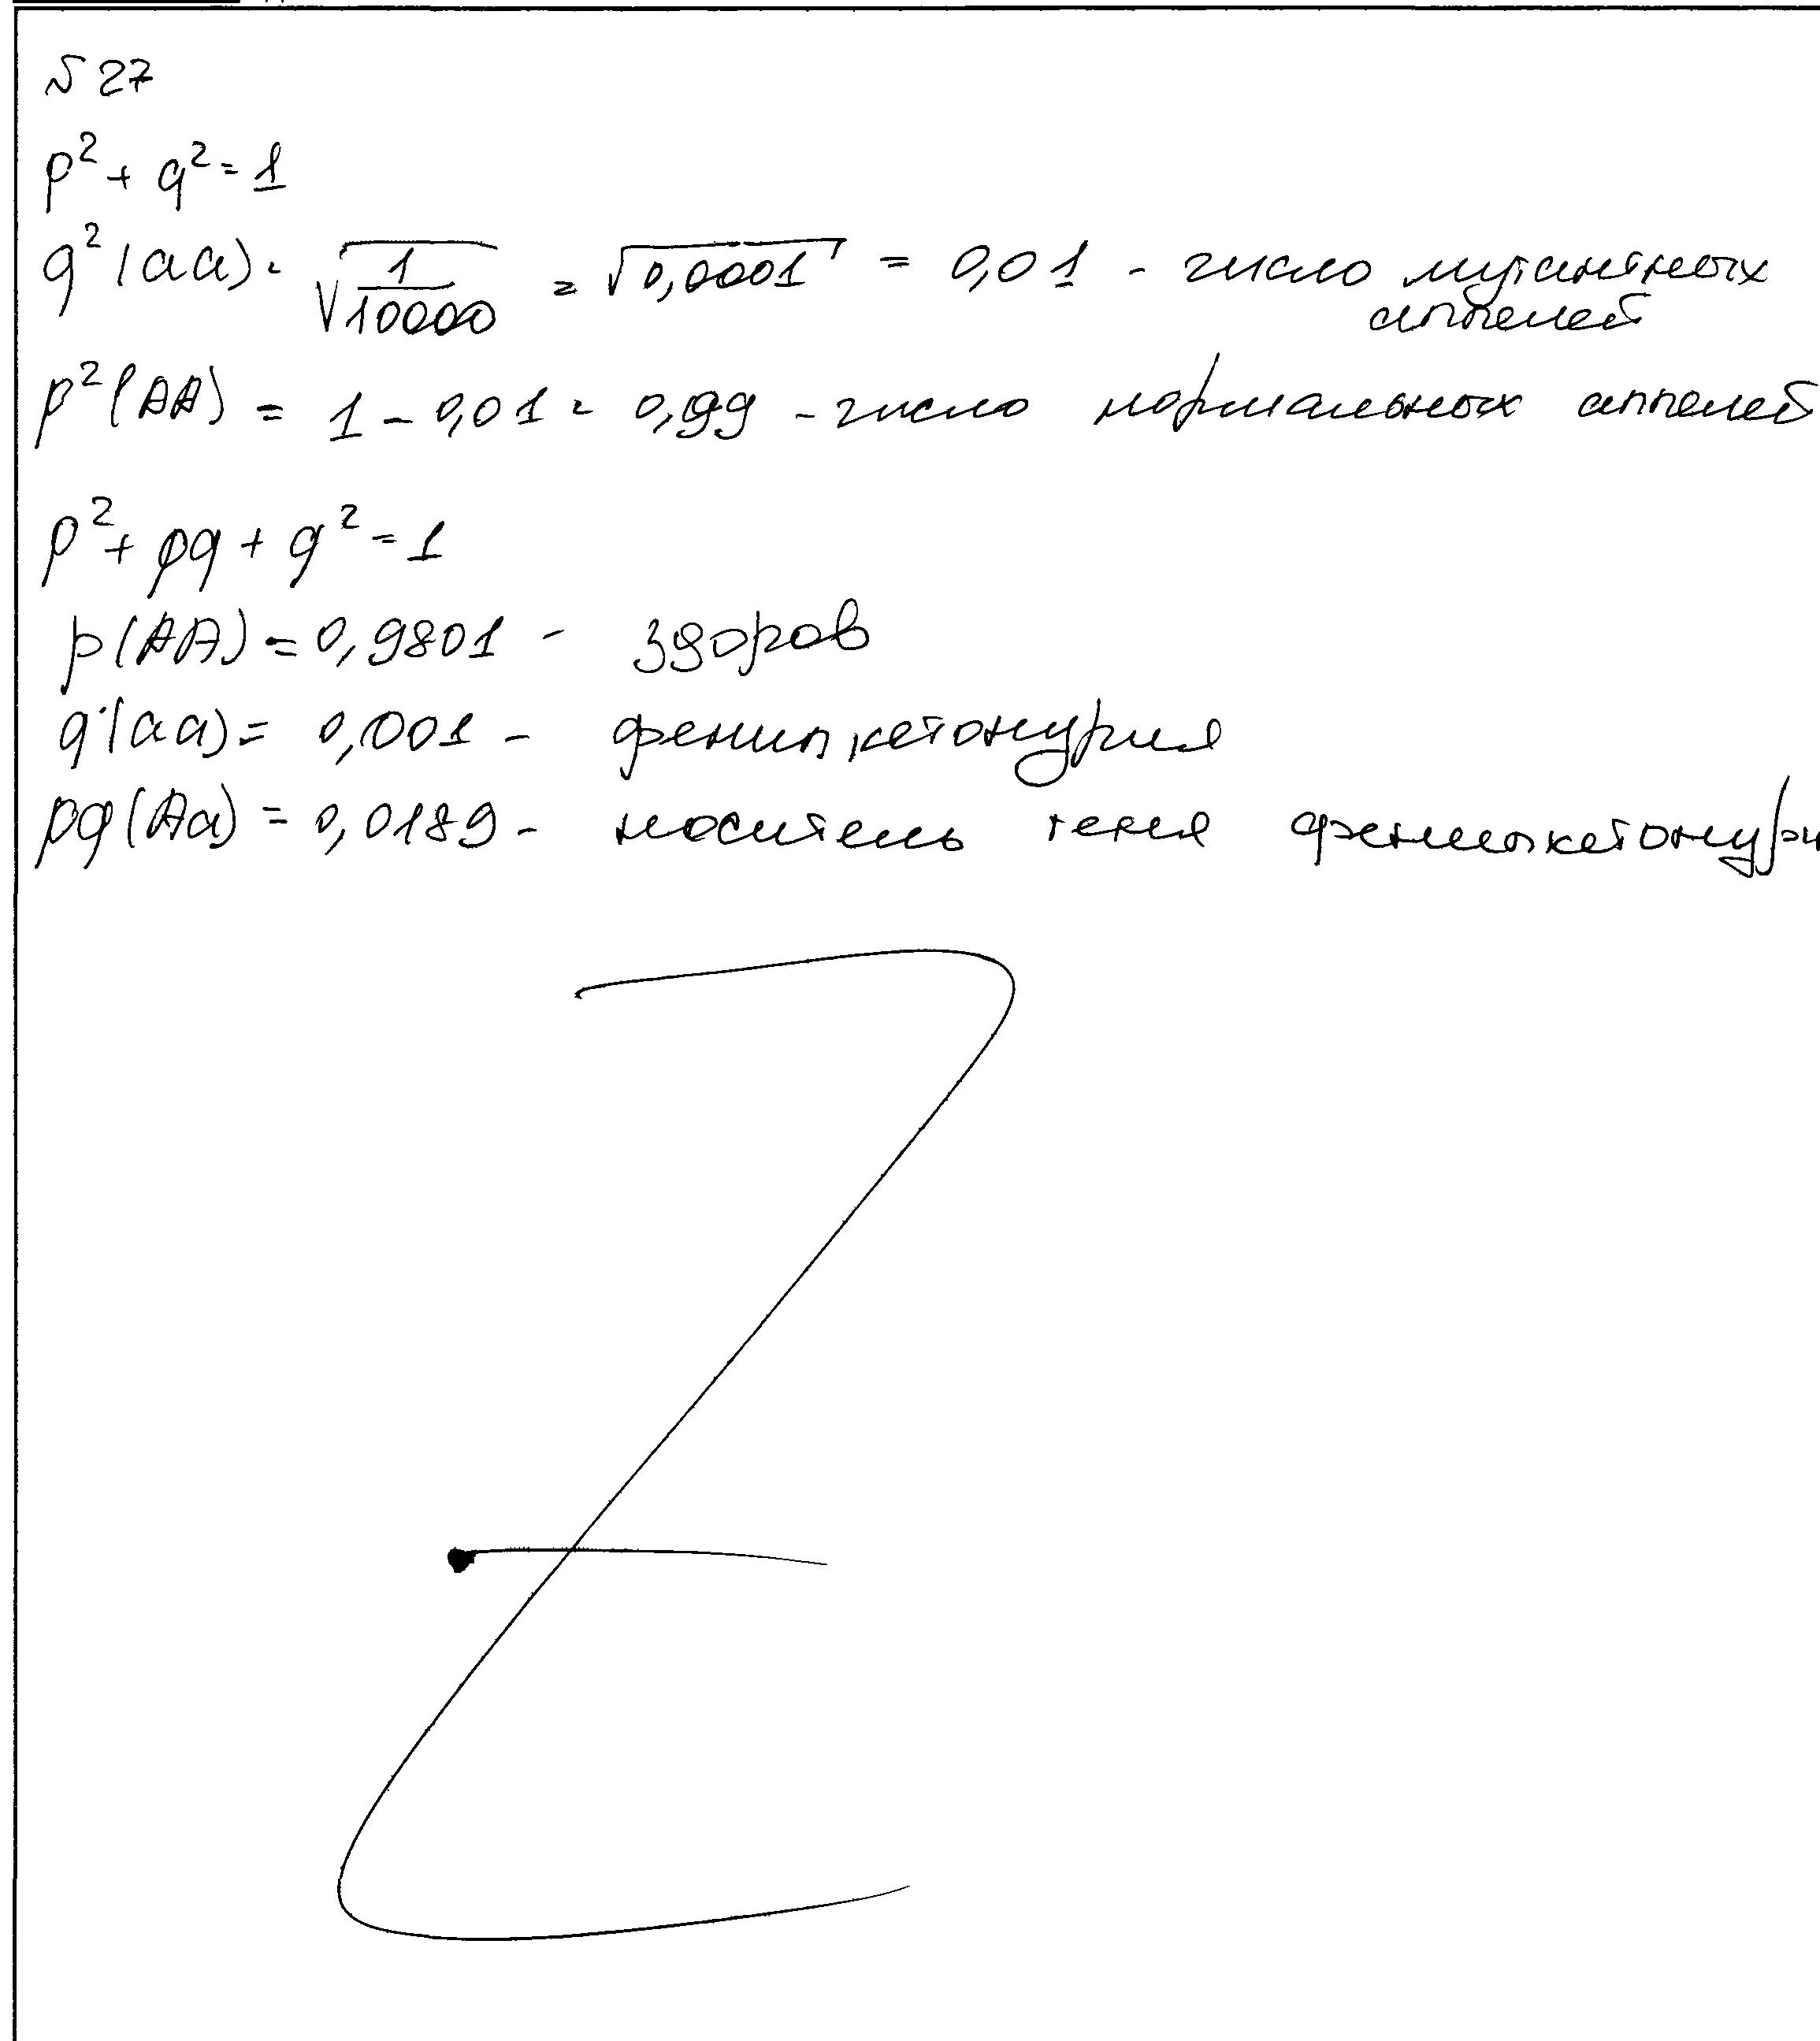 № 27
p² + q² = 1
q² (aa) = √1/10000 = √0,0001 = 0,01 - число мутантных
аллелей
p² (AA) = 1 - 0,01 = 0,99 - число нормальных аллелей
p² + pq + q² = 1
p(AA) = 0,9801 - здоров
q(aa) = 0,001 - фенилкетонурия
pq(Aa) = 0,0189 - носитель гена фенилкетонури